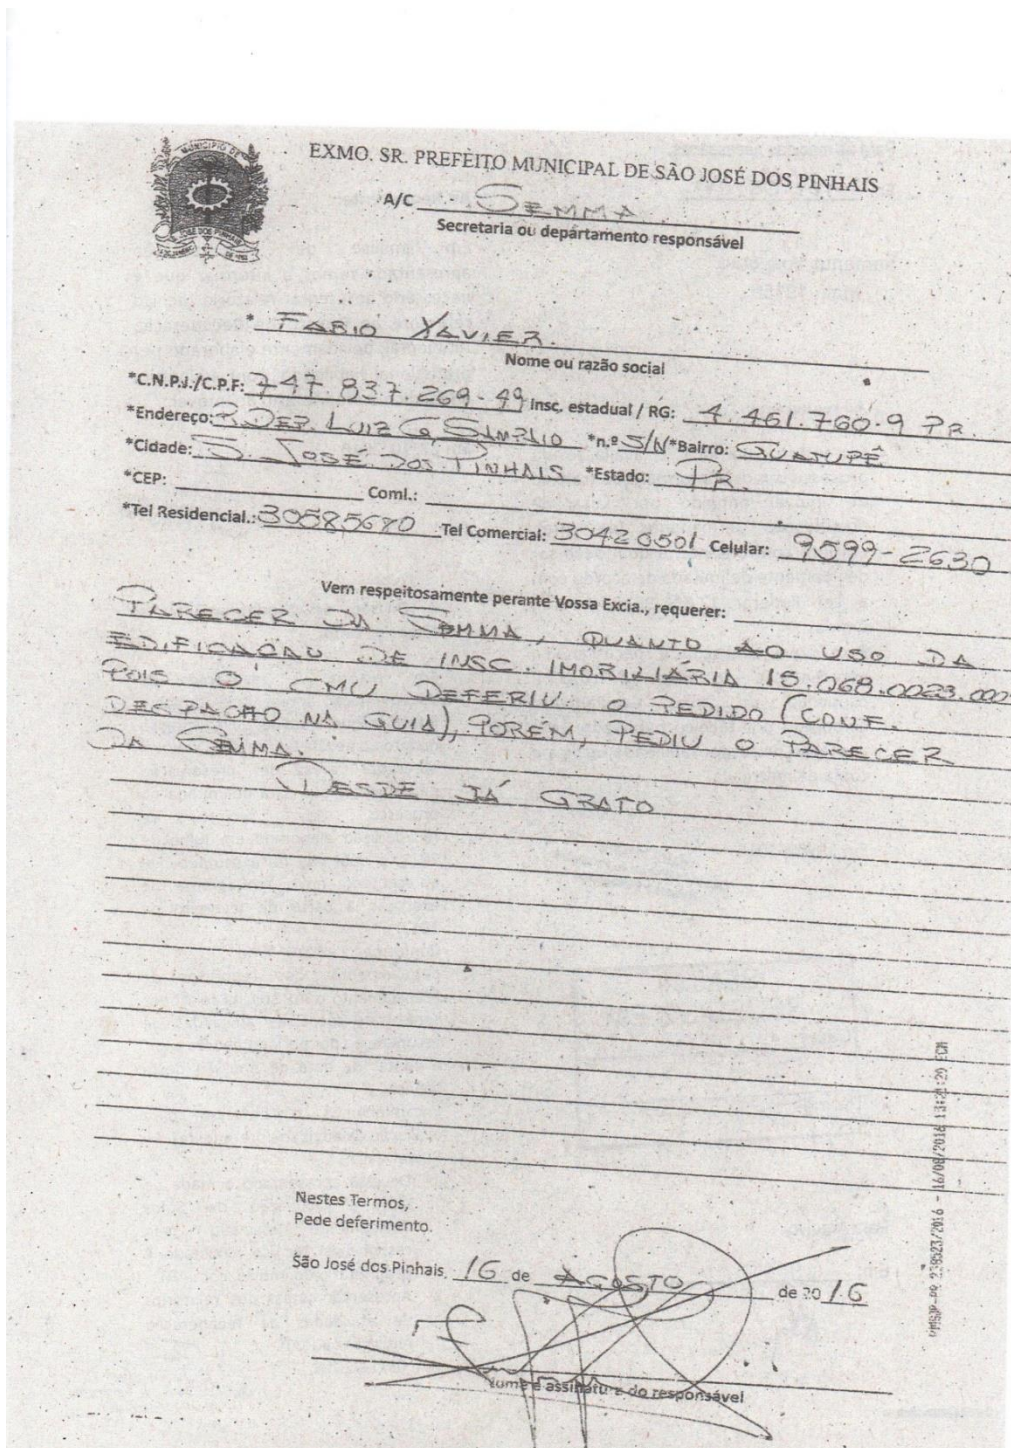 MUNICIPIO DE
SÃO JOSÉ DOS PINHAIS
EXMO. SR. PREFEITO MUNICIPAL DE SÃO JOSÉ DOS PINHAIS
A/C SEMMA
Secretaria ou departamento responsável
* FABIO XAVIER.
Nome ou razão social
*C.N.P.J./C.P.F: 747.837.269-49 Insc. estadual / RG: 4.461.760-9 PR.
*Endereço: R. DEP. LUIZ G. SAMPAIO *n.º S/N *Bairro: GUATUPÊ
*Cidade: S. JOSÉ DOS PINHAIS *Estado: PR.
*CEP: Coml.:
*Tel Residencial.: 30585680 Tel Comercial: 30420501 Celular: 9599-2630
Vem respeitosamente perante Vossa Excia., requerer:
PARECER DA SEMMA, QUANTO AO USO DA
EDIFICACAO DE INSC. IMOBILIÁRIA 15.068.0023.000
POIS O CMU DEFERIU O PEDIDO (CONF.
DESPACHO NA GUIA), PORÉM, PEDIU O PARECER
DA SEMMA.
DESDE JÁ GRATO
Nestes Termos,
Pede deferimento.
São José dos Pinhais, 16 de AGOSTO de 2016
Nome e assinatura do responsável
PMSJP-PR 238523/2016 - 16/08/2016 13:21:29 ECM